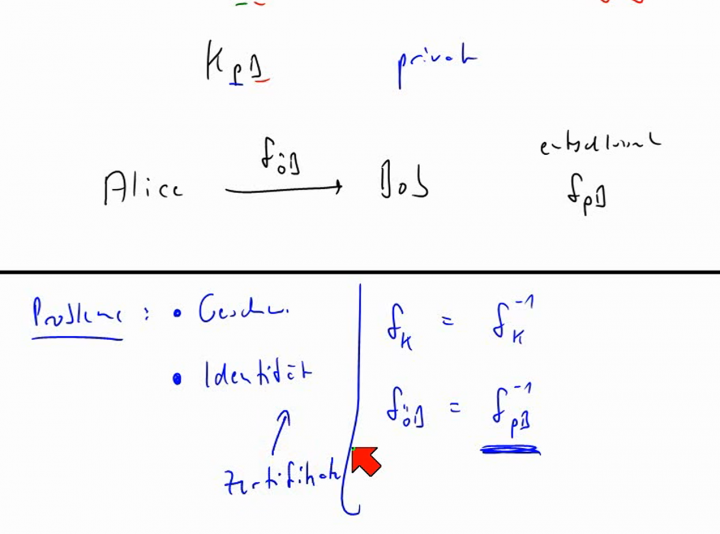 K_pB privat
Alice f_öB → Bob entschlüsselt f_pB
Probleme : • Geschw.
• Identität
Zertifikat
f_K = f_K^-1
f_öB = f_pB^-1